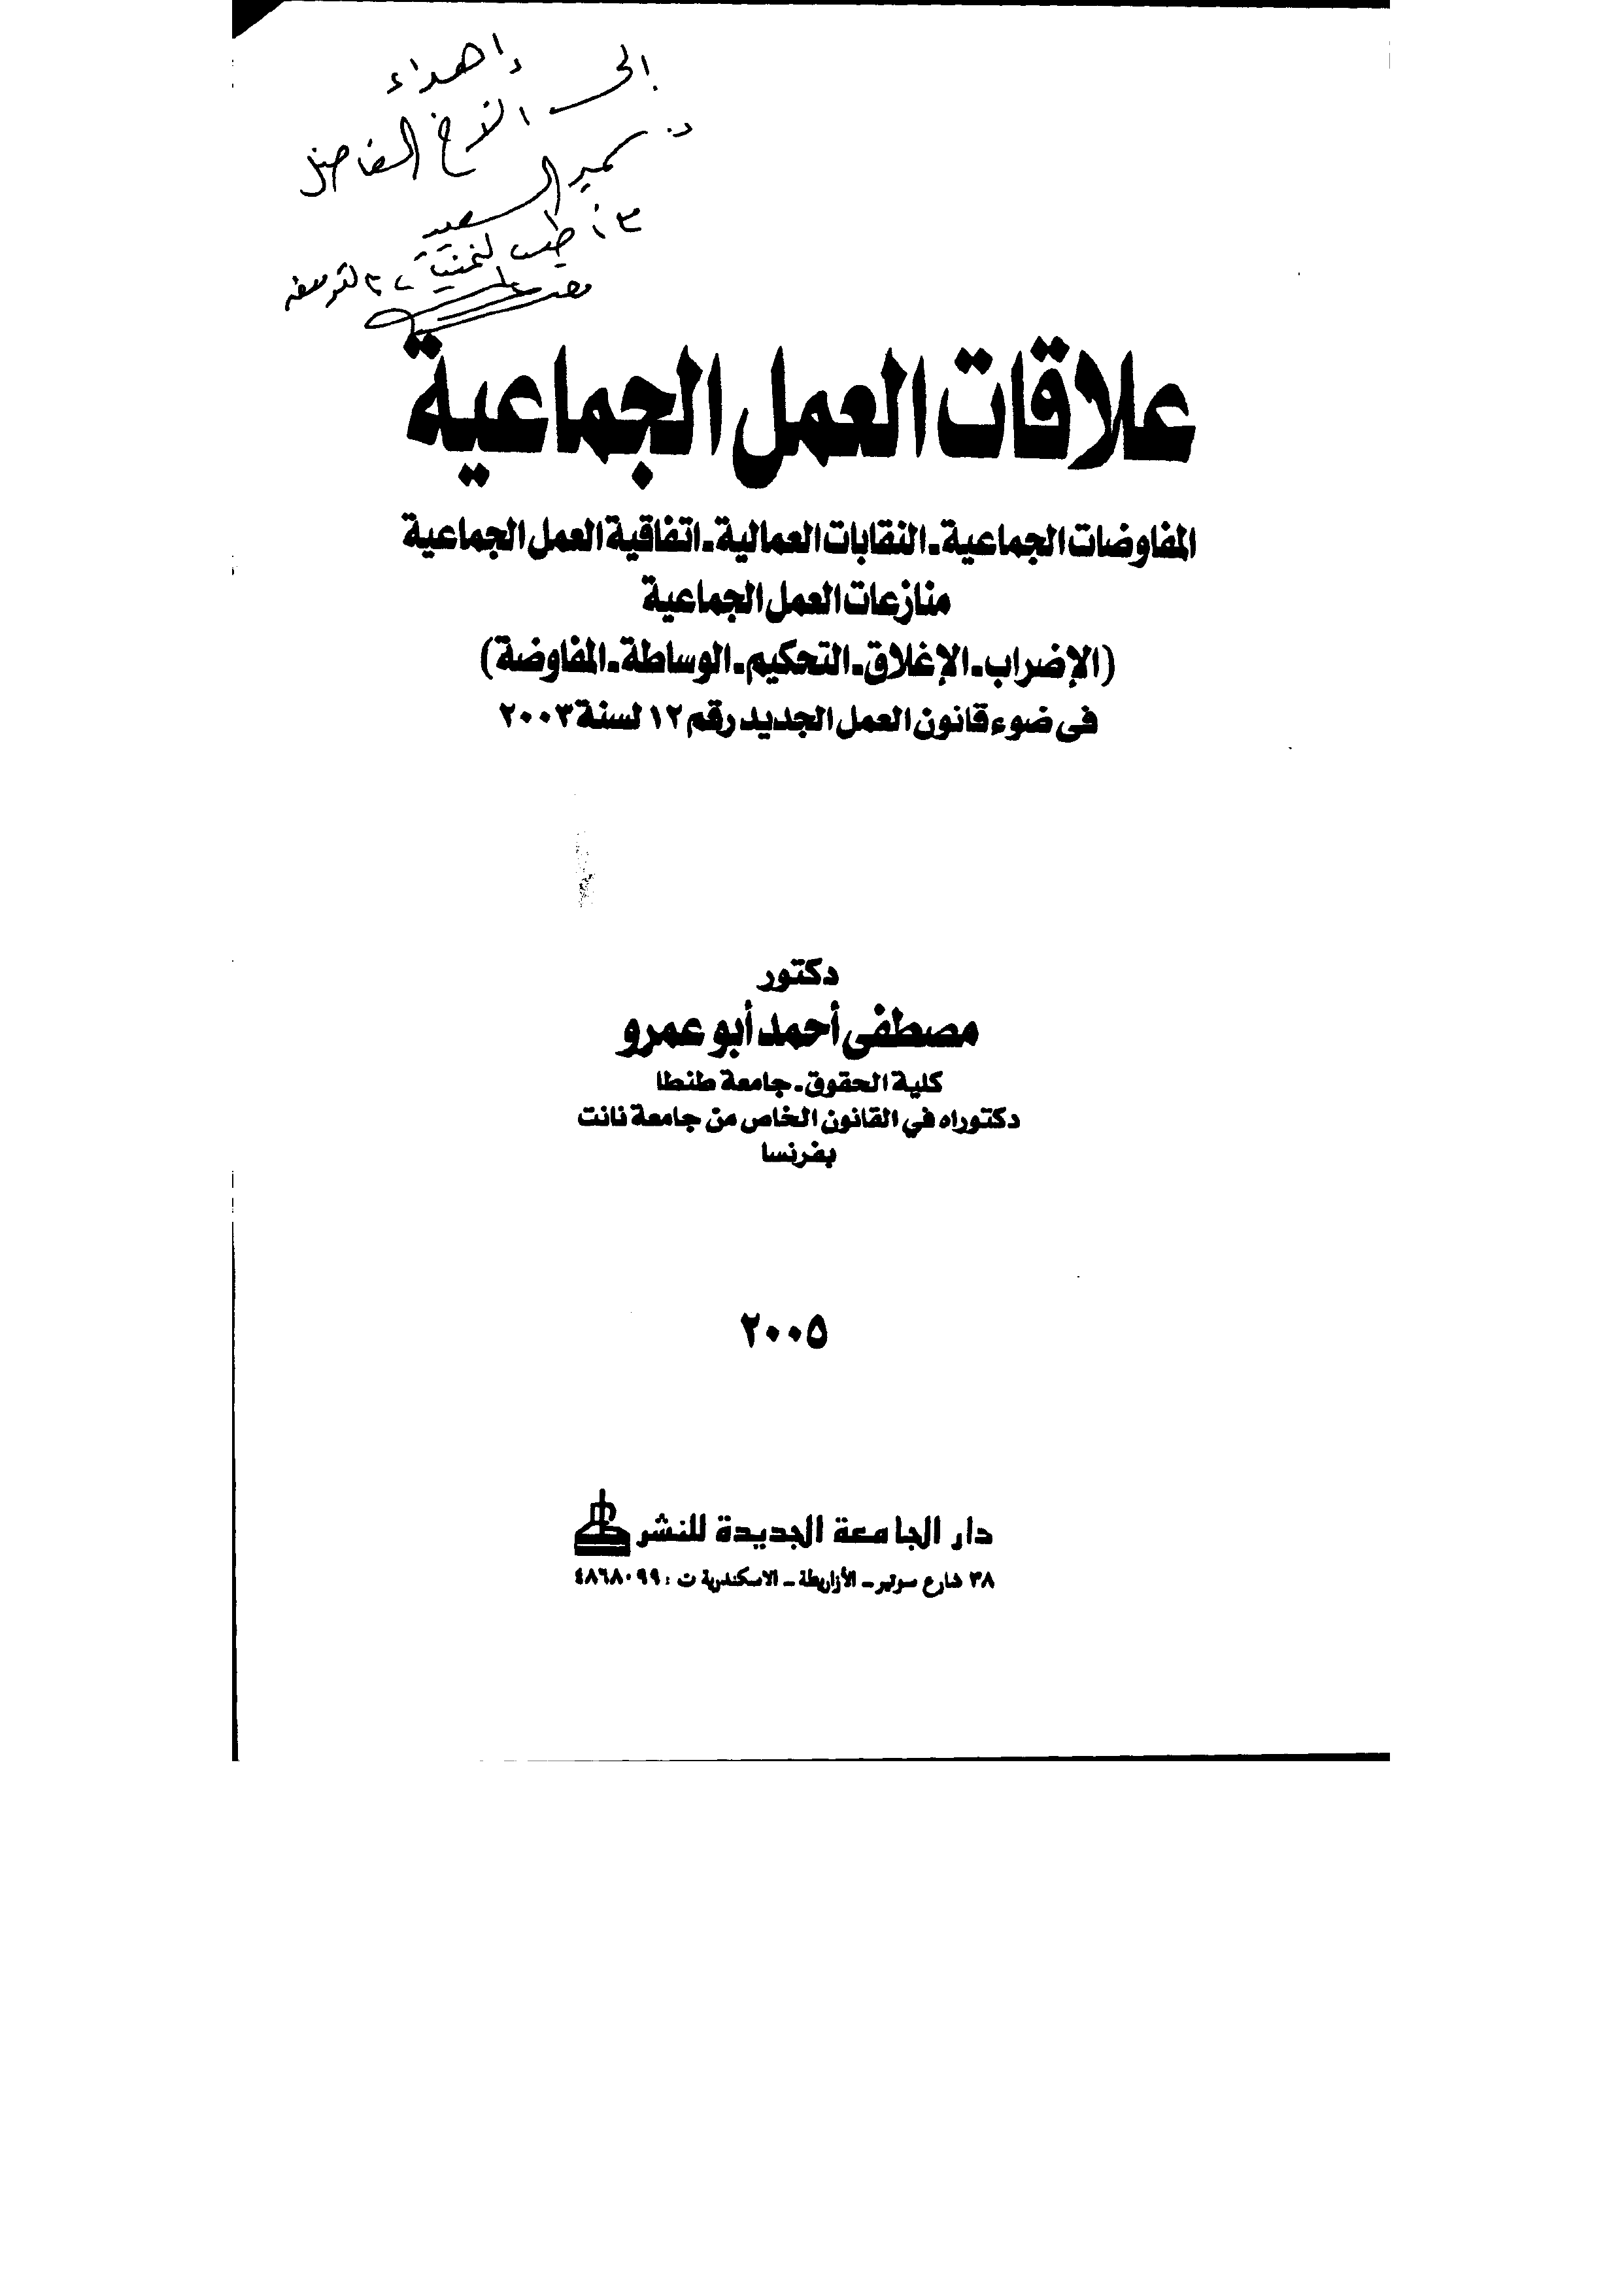 إهداء
إلى الأخ الفاضل
د. سمير السعيد
مع أطيب تمنياتى بالتوفيق
علاقات العمل الجماعية
المفاوضات الجماعية - النقابات العمالية - اتفاقية العمل الجماعية
منازعات العمل الجماعية
(الإضراب - الإغلاق - التحكيم - الوساطة - المفاوضة)
فى ضوء قانون العمل الجديد رقم ١٢ لسنة ٢٠٠٣
دكتور
مصطفى أحمد أبو عمرو
كلية الحقوق - جامعة طنطا
دكتوراه في القانون الخاص من جامعة نانت
بفرنسا
٢٠٠٥
دار الجامعة الجديدة للنشر
٣٨ شارع سوتير - الأزاريطة - الاسكندرية ت : ٤٨٦٨٠٩٩